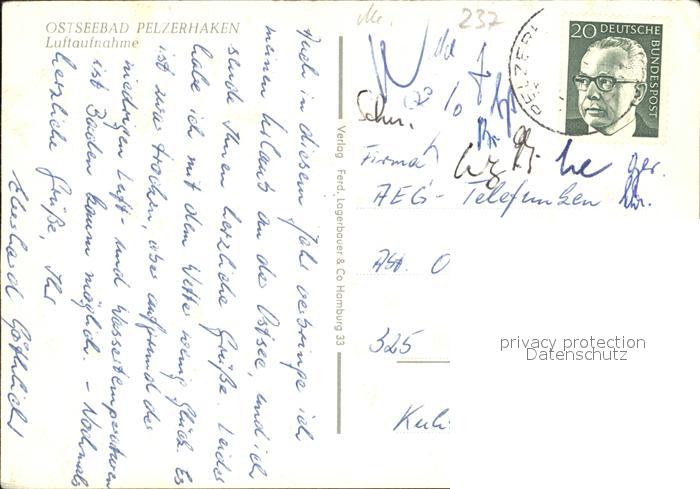 OSTSEEBAD PELZERHAKEN
Luftaufnahme
Auch in diesem Jahr verbringe ich
meinen Urlaub an der Ostsee, und ich
sende Ihnen herzliche Grüße. Leider
habe ich mit dem Wetter wenig Glück. Es
ist zwar trocken, aber aufgrund der
niedrigen Luft- und Wassertemperaturen
ist Baden kaum möglich. - Nochmals
herzliche Grüße, Ihr
Eberhard
Verlag Ferd. Lagerbauer & Co Hamburg 33
237
PELZER
20 DEUTSCHE
BUNDESPOST
Firma
AEG- Telefunken
Abt. O
325
privacy protection
Datenschutz